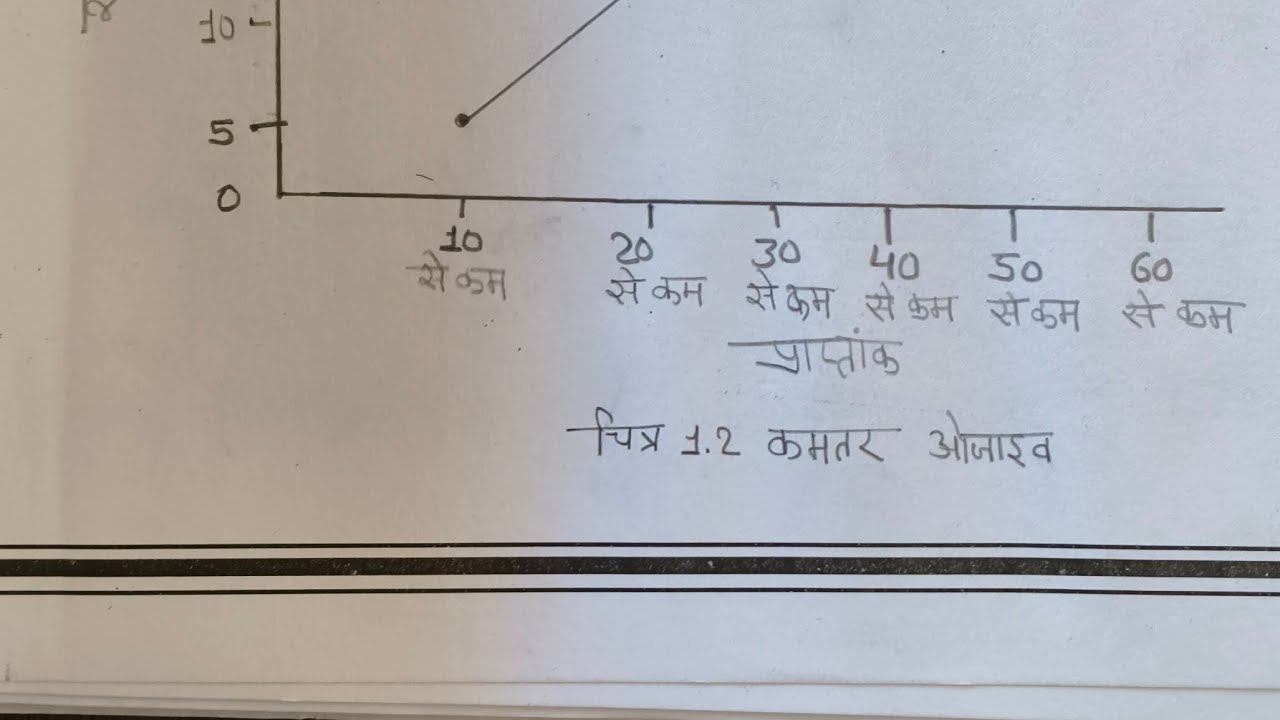 10
5
0
10 20 30 40 50 60
से कम से कम से कम से कम से कम से कम
प्राप्तांक
चित्र 1.2 कमतर ओजाइव